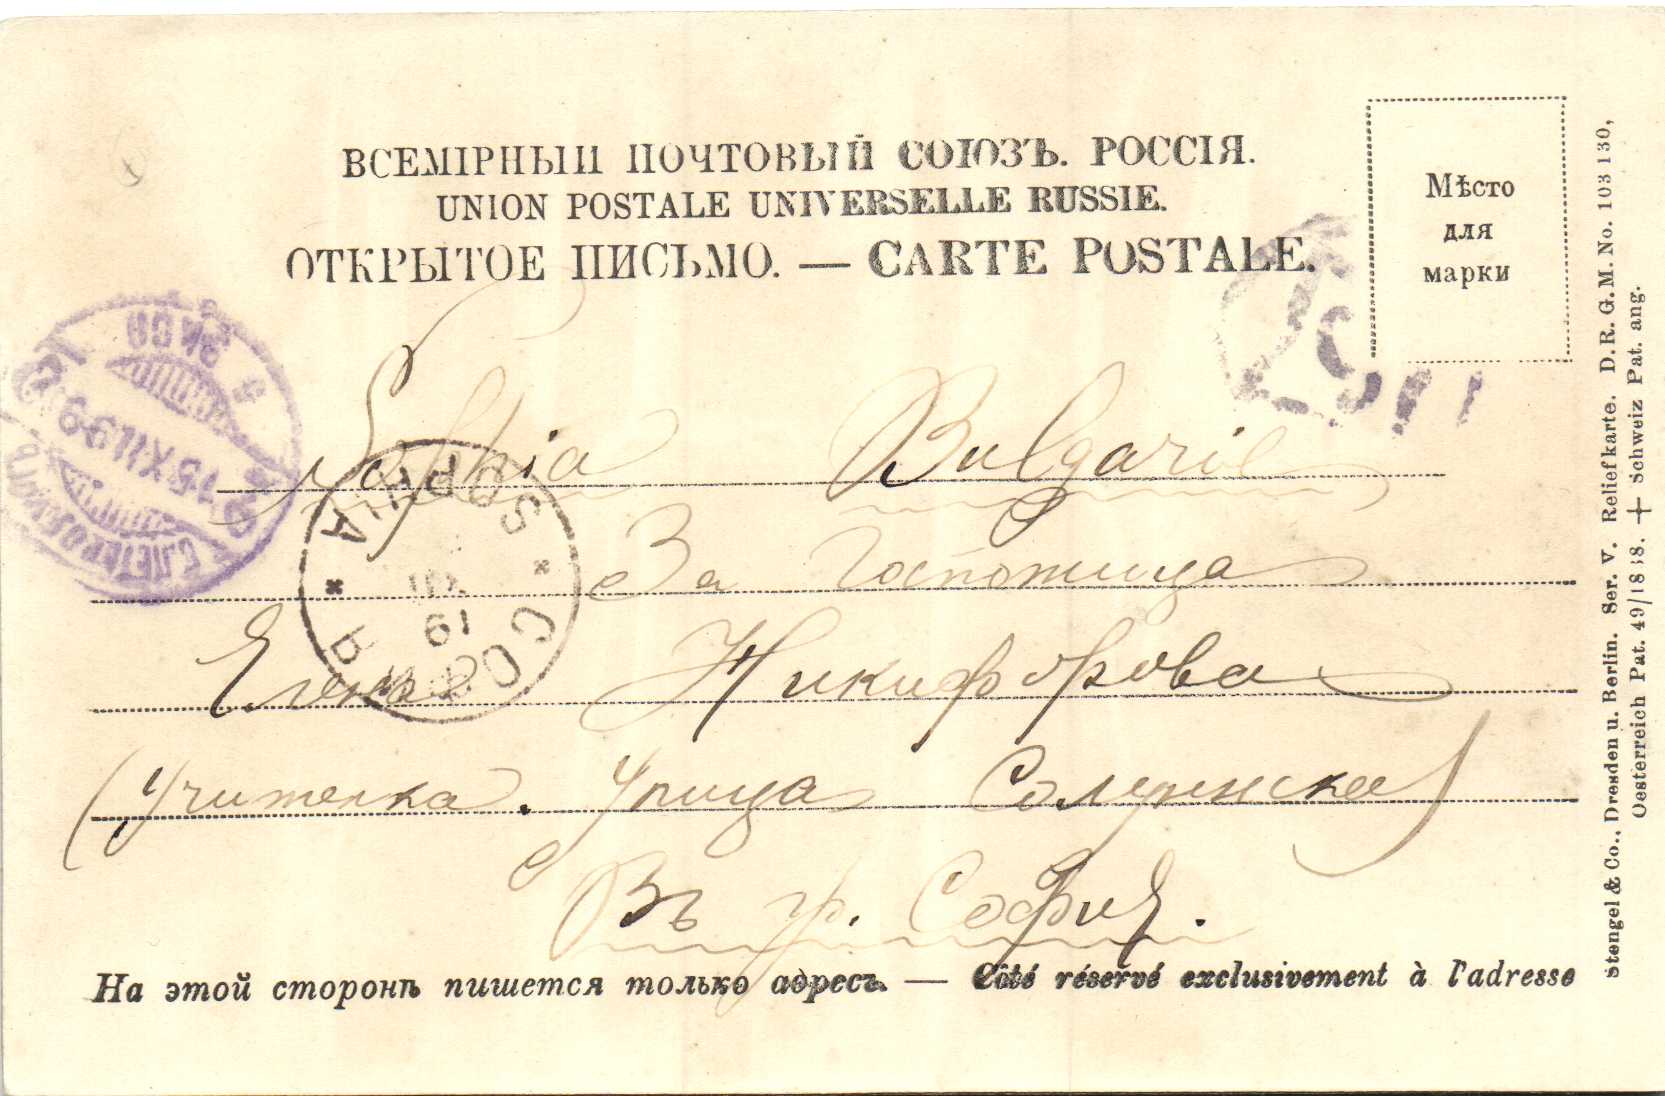 ВСЕМІРНЫЙ ПОЧТОВЫЙ СОЮЗЪ. РОССІЯ.
UNION POSTALE UNIVERSELLE RUSSIE.
ОТКРЫТОЕ ПИСЬМО. — CARTE POSTALE.
Мѣсто
для
марки
Sophia Bulgarie
За Госпожица
Никифорова
(Учителка. Улица Солунска)
Въ гр. София.
На этой сторонѣ пишется только адресъ. — Côté réservé exclusivement à l'adresse
SOPHIA
19
Stengel & Co., Dresden u. Berlin. Ser. V. Reliefkarte. D. R. G. M. No. 103130,
Oesterreich Pat. 49/1838. + Schweiz Pat. ang.